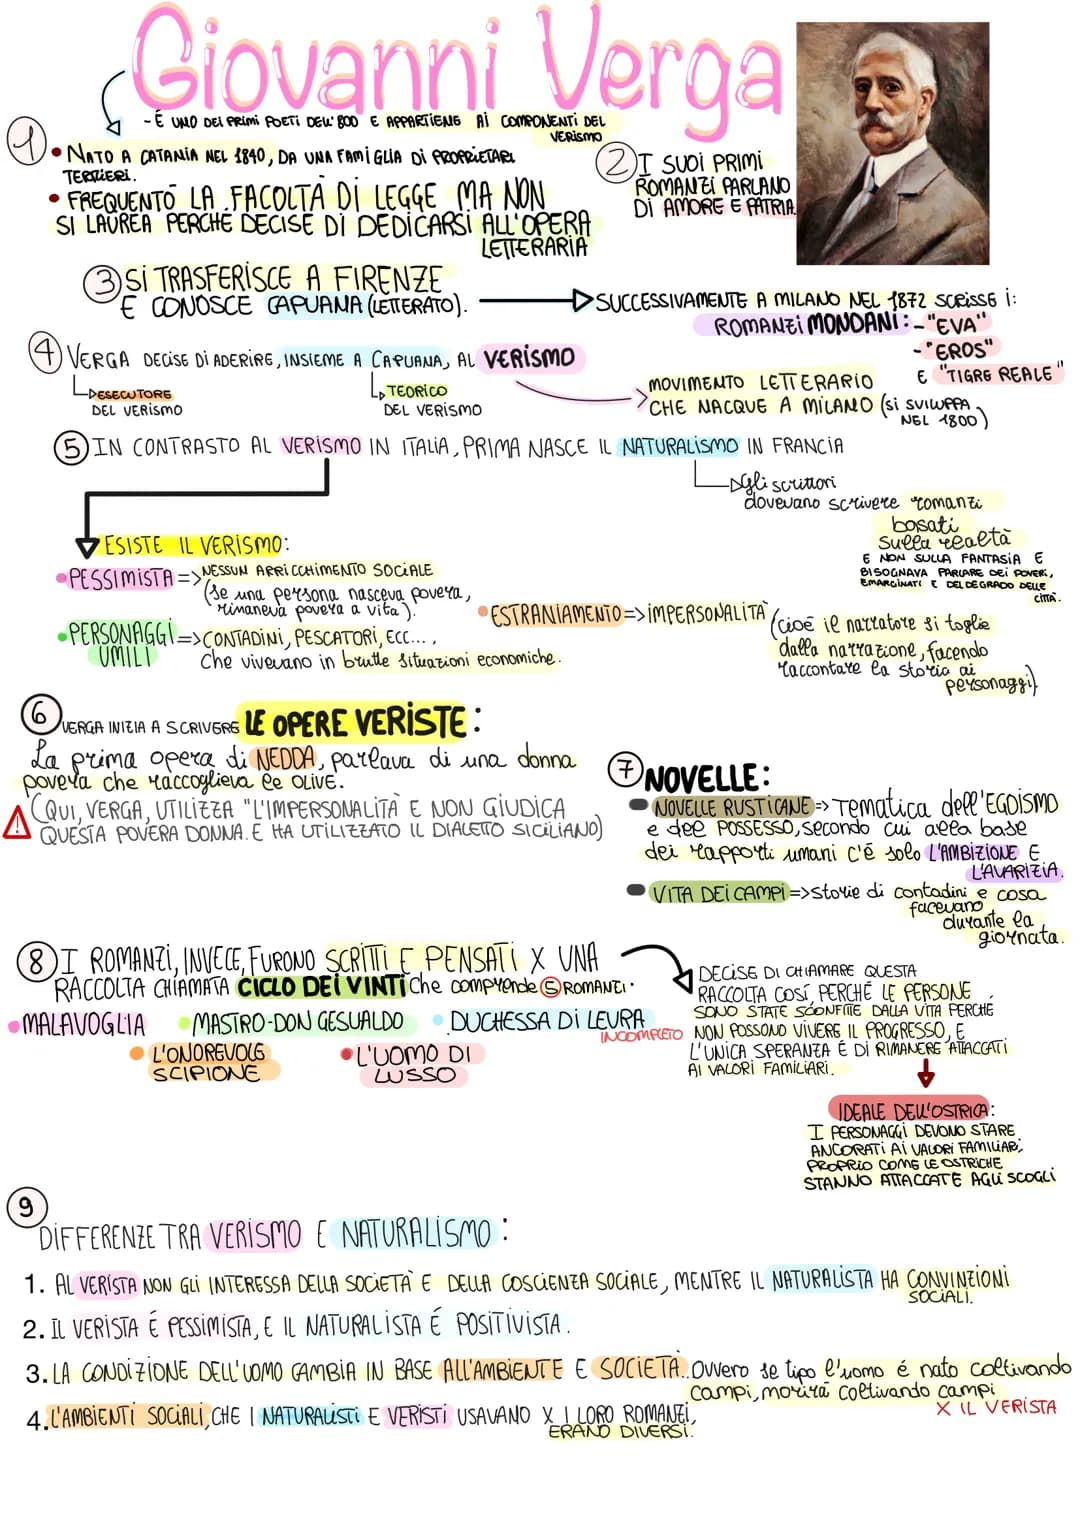 Giovanni Verga
- É UNO DEI PRIMI POETI DELL'800 E APPARTIENE AI COMPONENTI DEL
VERISMO
1
• NATO A CATANIA NEL 1840, DA UNA FAMIGLIA DI PROPRIETARI
TERRIERI.
• FREQUENTÒ LA FACOLTÀ DI LEGGE MA NON
SI LAUREA PERCHÉ DECISE DI DEDICARSI ALL'OPERA
LETTERARIA
2 I SUOI PRIMI
ROMANZI PARLANO
DI AMORE E PATRIA.
3 SI TRASFERISCE A FIRENZE
E CONOSCE CAPUANA (LETTERATO).
SUCCESSIVAMENTE A MILANO NEL 1872 SCRISSE I:
ROMANZI MONDANI: - "EVA"
- "EROS"
E "TIGRE REALE"
4 VERGA DECISE DI ADERIRE, INSIEME A CAPUANA, AL VERISMO
ESECUTORE
DEL VERISMO
TEORICO
DEL VERISMO
MOVIMENTO LETTERARIO
CHE NACQUE A MILANO (SI SVILUPPA
NEL 1800)
5 IN CONTRASTO AL VERISMO IN ITALIA, PRIMA NASCE IL NATURALISMO IN FRANCIA
gli scrittori
dovevano scrivere romanzi
basati
sulla realtà
E NON SULLA FANTASIA E
BISOGNAVA PARLARE DEI POVERI,
EMARGINATI E DEL DEGRADO DELLE
CITTÀ.
ESISTE IL VERISMO:
• PESSIMISTA => NESSUN ARRICCHIMENTO SOCIALE
(se una persona nasceva povera,
rimaneva povera a vita).
• PERSONAGGI => CONTADINI, PESCATORI, ECC...,
UMILI che vivevano in brutte situazioni economiche.
• ESTRANIAMENTO => IMPERSONALITÀ (cioé il narratore si toglie
dalla narrazione, facendo
raccontare la storia ai
personaggi)
6 VERGA INIZIA A SCRIVERE LE OPERE VERISTE:
La prima opera di NEDDA, parlava di una donna
povera che raccoglieva le olive.
(QUI, VERGA, UTILIZZA "L'IMPERSONALITÀ E NON GIUDICA
QUESTA POVERA DONNA. E HA UTILIZZATO IL DIALETTO SICILIANO)
7 NOVELLE:
NOVELLE RUSTICANE => Tematica dell'EGOISMO
e del POSSESSO, secondo cui alla base
dei rapporti umani c'é solo L'AMBIZIONE E
L'AVARIZIA.
VITA DEI CAMPI => storie di contadini e cosa
facevano
durante la
giornata.
8 I ROMANZI, INVECE, FURONO SCRITTI E PENSATI X UNA
RACCOLTA CHIAMATA CICLO DEI VINTI che comprende 5 ROMANZI.
• MALAVOGLIA • MASTRO-DON GESUALDO • DUCHESSA DI LEURA
INCOMPLETO
• L'ONOREVOLE
SCIPIONE
• L'UOMO DI
LUSSO
DECISE DI CHIAMARE QUESTA
RACCOLTA COSÍ, PERCHÉ LE PERSONE
SONO STATE SCONFITTE DALLA VITA PERCHÉ
NON POSSONO VIVERE IL PROGRESSO, E
L'UNICA SPERANZA É DI RIMANERE ATTACCATI
AI VALORI FAMILIARI.
IDEALE DELL'OSTRICA:
I PERSONAGGI DEVONO STARE
ANCORATI AI VALORI FAMILIARI,
PROPRIO COME LE OSTRICHE
STANNO ATTACCATE AGLI SCOGLI
9
DIFFERENZE TRA VERISMO E NATURALISMO:
1. AL VERISTA NON GLI INTERESSA DELLA SOCIETÀ E DELLA COSCIENZA SOCIALE, MENTRE IL NATURALISTA HA CONVINZIONI
SOCIALI.
2. IL VERISTA É PESSIMISTA, E IL NATURALISTA É POSITIVISTA.
3. LA CONDIZIONE DELL'UOMO CAMBIA IN BASE ALL'AMBIENTE E SOCIETÀ.. Ovvero se tipo l'uomo é nato coltivando
campi, morirà coltivando campi
X IL VERISTA
4. L'AMBIENTI SOCIALI, CHE I NATURALISTI E VERISTI USAVANO X I LORO ROMANZI,
ERANO DIVERSI.